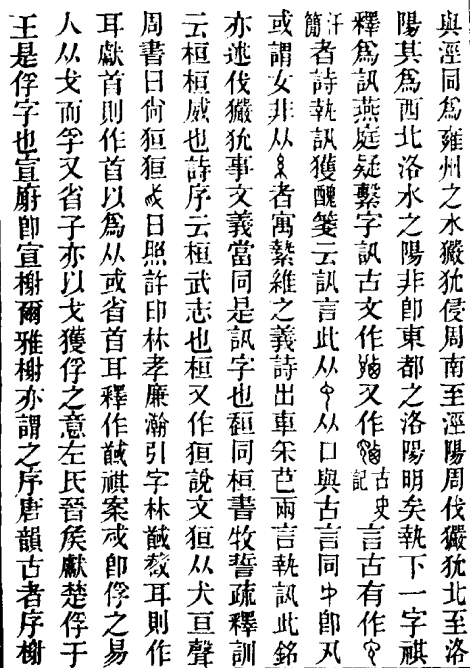 與涇同爲雍州之水玁狁侵周南至涇陽周伐玁狁北至洛
陽其爲西北洛水之陽非卽東都之洛陽明矣執下一字祺
釋爲訊燕庭疑繫字訊古文作又作古史言古有作
汗簡者詩執訊獲醜箋云訊言此从从口與古言同中卽丮
或謂女非从者寓縶維之義詩出車采芑兩言執訊此銘
亦述伐玁狁事文義當同是訊字也桓同桓書牧誓疏釋訓
云桓桓威也詩序云桓武志也桓又作狟說文狟从犬亘聲
周書曰尙狟狟日照許印林孝廉瀚引字林馘截耳則作
耳獻首則作首以爲从或省首耳釋作馘祺案戓卽俘之易
人从戈而孚又省子亦以戈獲俘之意左氏晉矦獻楚俘于
王是俘字也宣廟卽宣榭爾雅榭亦謂之序唐韻古者序榭